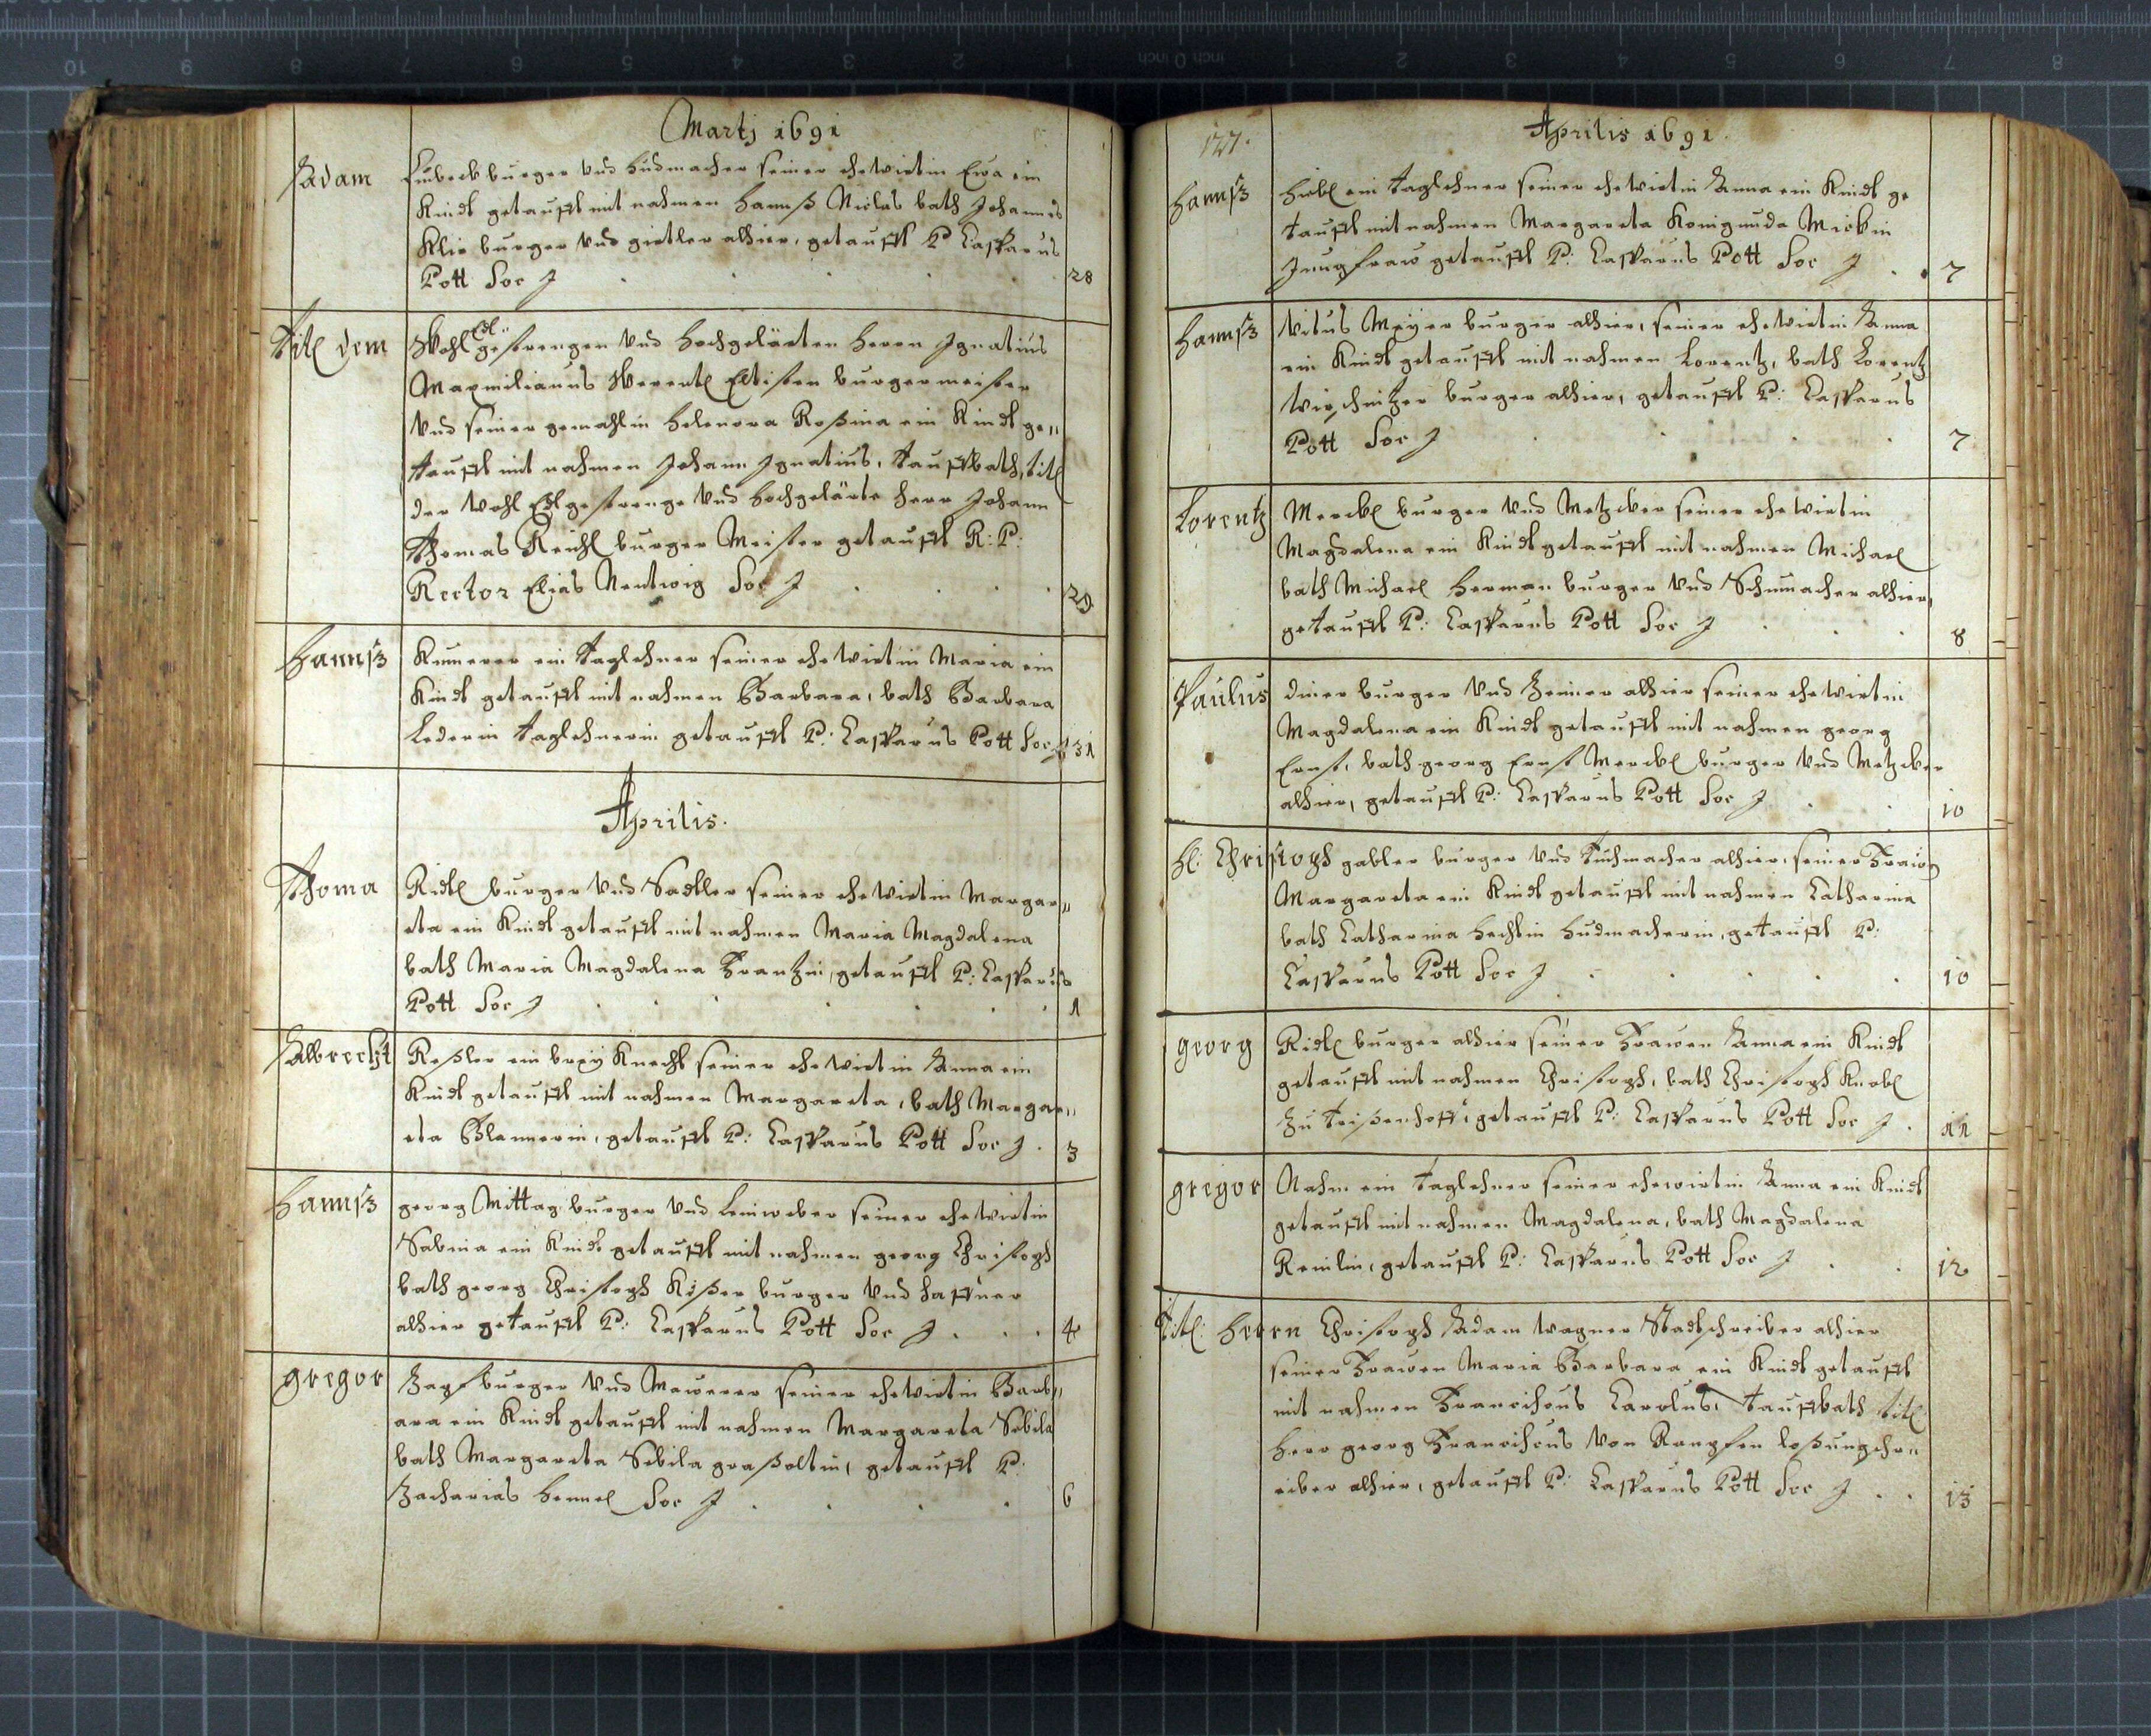 Martj 1691
Adam burger vnd hudmacher seiner ehewirtin Eva ein
Kindt getaufft mit nahmen Hannß Niclas bath Johannes
burger vnd girtler alhier, getaufft P Casparus
Pott Soc J 28
Titl dem Wohl Edl gestrengen vnd hochgelärten herrn Ignatius
Maximilianus Werentl Eltisten burgermeister
vnd seiner gemahlin Helenora Rosina ein Kindt ge„
taufft mit nahmen Johann Ignatius, tauffbath, titl
der wohl Edlgestrenge vnd hochgelärte herr Johann
Thomas Reichl burger Meister getaufft R: P:
Rector Elias Nentwig Soc J 29
Hannß ein taglehner seiner ehewirtin Maria ein
Kindt getaufft mit nahmen Barbara, bath Barbara
Lederin taglehnerin getaufft P: Casparus Pott Soc J 31
Aprilis.
Thoma Ridl burger vnd Sadtler seiner ehewirtin Margar„
eta ein Kindt getaufft mit nahmen Maria Magdalena
bath Maria Magdalena Frantzin, getaufft P: Casparus
Pott Soc J 1
Albrecht Reßler ein brey Knecht seiner ehewirtin Anna ein
Kindt getaufft mit nahmen Margareta, bath Margar„
eta getaufft P: Casparus Pott Soc J. 3
Hannß georg Mittag burger vnd leinweber seiner ehewirtin
Sabina ein Kindt getaufft mit nahmen georg Christoph
bath georg Christoph burger vnd haffner
alhier getaufft P: Casparus Pott Soc J . . . 4
gregor burger vnd Mawerer seiner ehewirtin Barb„
ara ein Kindt getaufft mit nahmen Margareta Sebila
bath Margareta Sebila getaufft P:
Zacharias Hennel Soc J . . . . 6
127.
Aprilis 1691.
Hannß ein taglehner seiner ehewirtin Anna ein Kindt ge
taufft mit nahmen Margareta Konigunda Mickin
Jungfraw getaufft P: Casparus Pott Soc J . . 7
Hannß vitus Meyer burger alhier, seiner ehewirtin Anna
ein Kindt getaufft mit nahmen Lorentz, bath Lorentz
burger alhier, getaufft P: Casparus
Pott Soc J 7
Lorentz Merckl burger vnd Metzcker seiner ehewirtin
Magdalena ein Kindt getaufft mit nahmen Michael
bath Michael Herman burger vnd Schumacher alhier,
getaufft P: Casparus Pott Soc J 8
Paulus burger vnd alhier seiner ehewirtin
Magdalena ein Kindt getaufft mit nahmen georg
Ernst, bath georg Ernst Merckl burger vnd Metzcker
alhier, getaufft P: Casparus Pott Soc J 10
H: Christoph gabler burger vnd Tuchmacher alhier, seiner Frawen
Margareta ein Kindt getaufft mit nahmen Catharina
bath Catharina Hechtin hudmacherin, getaufft P:
Casparus Pott Soc J 10
georg Ridl burger alhier seiner Frawen Anna ein Kindt
getaufft mit nahmen Christoph, bath Christoph Knobl
zu getaufft P: Casparus Pott Soc J . 11
gregor Nahm ein taglehner seiner ehewirtin Anna ein Kindt
getaufft mit nahmen Magdalena, bath Magdalena
getaufft P: Casparus Pott Soc J . . 12
Titl: Herrn Christoph Adam wagner Stadtschreiber alhier
seiner Frawen Maria Barbara ein Kindt getaufft
mit nahmen Franciscus Carolus, tauffbath titl
herr georg Franciscus von loßungschr„
eiber alhier, getaufft P: Casparus Pott Soc J . . 13